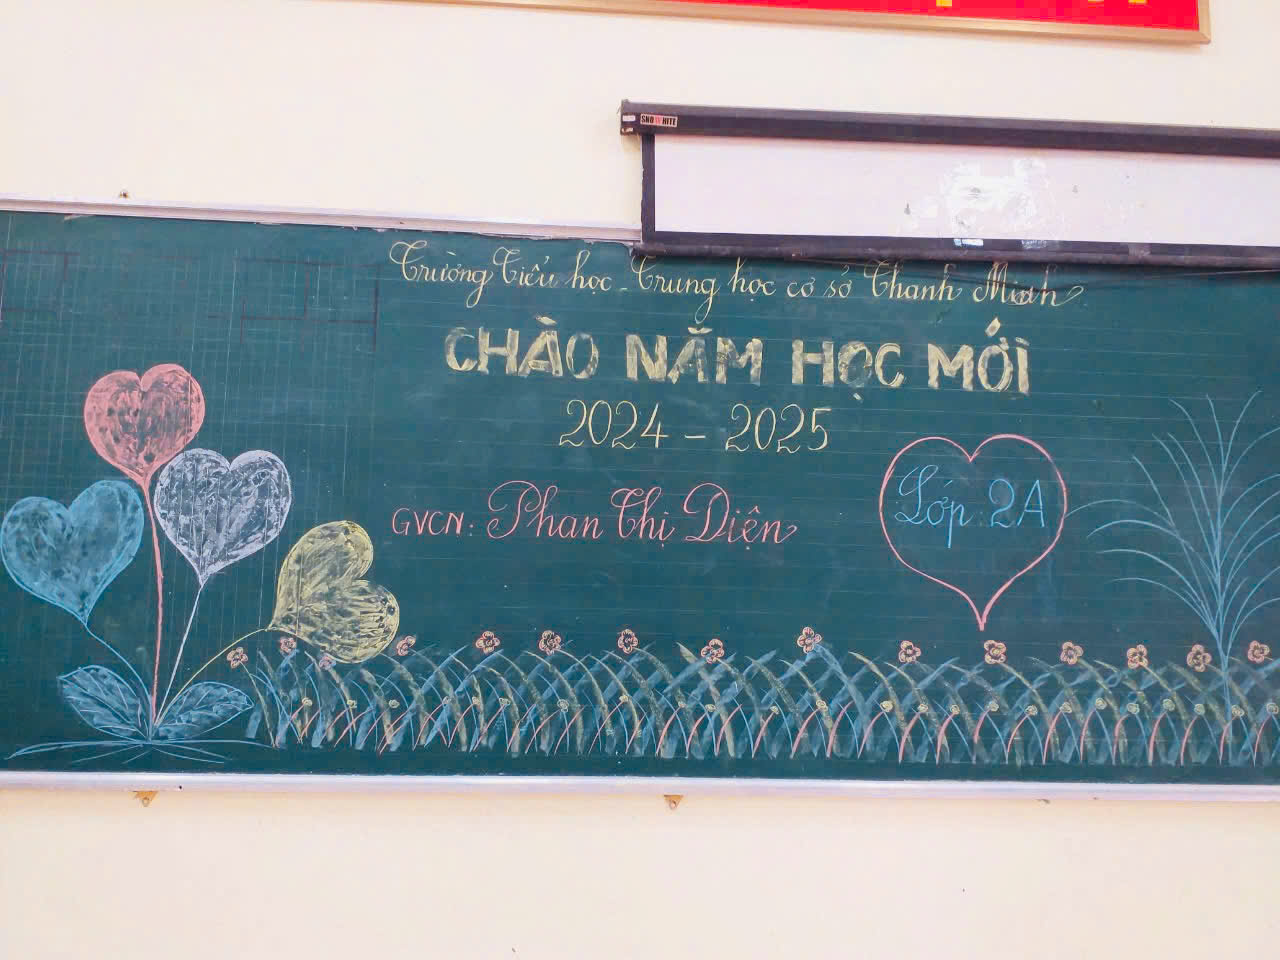 SNOWHITE
Trường Tiểu học - Trung học cơ sở Thanh Minh
CHÀO NĂM HỌC MỚI
2024 - 2025
GVCN: Phan Thị Diện
Lớp 2A